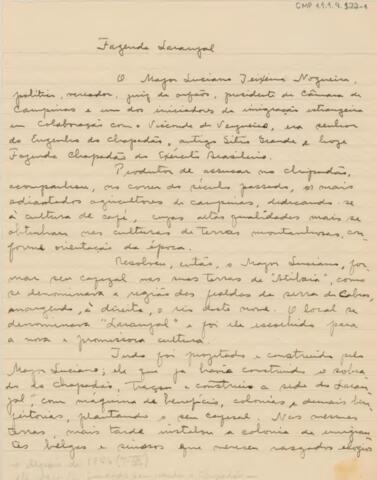 CMP 1.1.4.922-1
Fazenda Laranjal
O Major Luciano Teixeira Nogueira,
politico, vereador, juiz de orfãos, presidente da Câmara de
Campinas e um dos iniciadores da imigração estrangeira
em colaboração com o Visconde de Vergueiro, era senhor
do Engenho do Chapadão, antigo Sitio Grande e hoje
Fazenda Chapadão do Exército Brasileiro.
Produtor de assucar no Chapadão,
acompanhou, no correr do século passado, os mais
adiantados agricultores de Campinas, dedicando-se
à cultura de café, cujas altas qualidades mais se
obtinham nas culturas de terras montanhosas, con
forme orientação da época.
Resolveu, então, o Major Luciano, for
mar seu cafezal nas suas terras de "Atibaia", como
se denominava a região dos fraldas da serra de Cabras,
margeando, à direita, o rio deste nome. O local se
denominava "Laranjal" e foi ele escolhido para
a nova e promissora cultura.
Tudo foi projetado e construido pelo
Major Luciano; ele que já havia construido o sobra
do do Chapadão, traçou e construiu a sede do Laran
jal" com máquina de beneficio, colonias e demais ben
feitorias, plantando o seu cafezal. Nas mesmas
terras, mais tarde instalou a colonia de imigran
tes belgas e suissos que merecem rasgados elogios